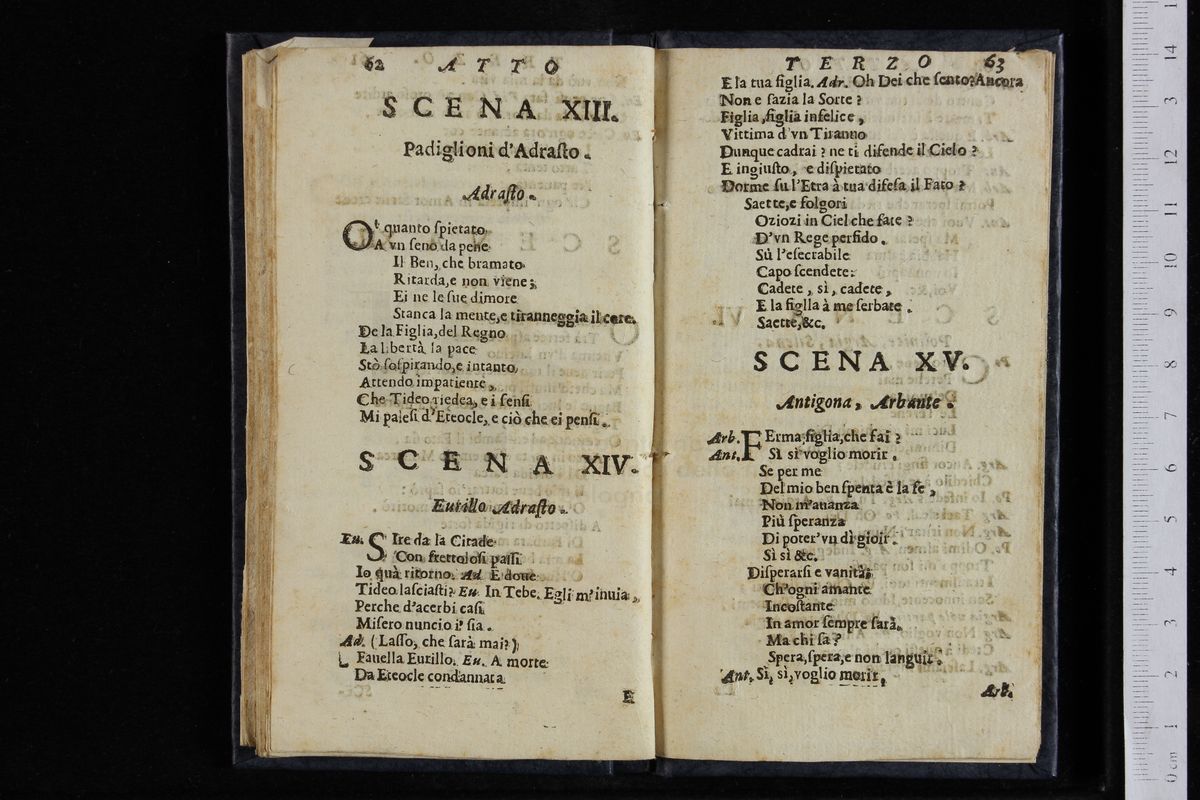 62 ATTO
SCENA XIII.
Padiglioni d'Adraſto.
Adraſto.
O' quanto ſpietato
A vn ſeno da pene
Il Ben, che bramato
Ritarda, e non viene;
Ei ne le ſue dimore
Stanca la mente, e tiranneggia il core.
De la Figlia, del Regno
La libertà la pace
Stò ſoſpirando, e intanto
Attendo impatiente,
Che Tideo riedea, e i ſenſi
Mi paleſi d'Eteocle, e ciò che ei penſi.
SCENA XIV.
Eurillo Adraſto.
Eu. SIre da la Citade
Con frettoloſi paſſi
Io quà ritorno. Ad E doue
Tideo laſciaſti? Eu. In Tebe. Egli m'inuia,
Perche d'acerbi caſi
Miſero nuncio i' ſia.
Ad. (Laſſo, che ſarà mai?)
Fauella Eurillo. Eu. A morte
Da Eteocle condannata
E
TERZO 63
E la tua figlia. Adr. Oh Dei che ſento? Ancora
Non e ſazia la Sorte?
Figlia, figlia infelice,
Vittima d'vn Tiranno
Dunque cadrai? ne ti difende il Cielo?
E ingiuſto, e diſpietato
Dorme ſu l'Etra à tua difeſa il Fato?
Saette, e folgori
Oziozi in Ciel che fate?
D'vn Rege perfido.
Sù l'eſecrabile
Capo ſcendete:
Cadete, sì, cadete,
E la figlla à me ſerbate.
Saette, &c.
SCENA XV.
Antigona, Arbante.
Arb. FErma figlia, che fai?
Ant. Sì sì voglio morir.
Se per me
Del mio ben ſpenta è la fe,
Non m'auanza
Più ſperanza
Di poter'vn dì gioir.
Sì sì &c.
Diſperarſi e vanità;
Ch'ogni amante
Incoſtante
In amor ſempre ſarà.
Ma chi ſa?
Spera, ſpera, e non languir.
Ant. Sì, sì, voglio morir,
Arb.